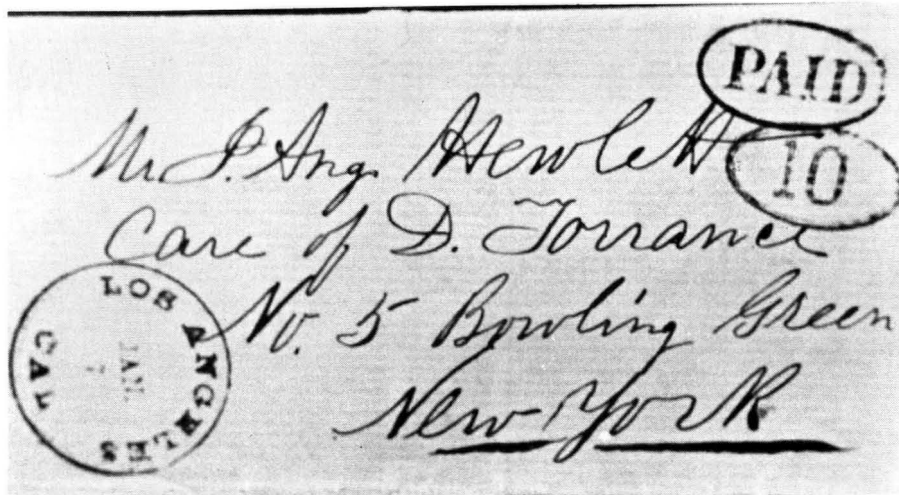 PAID
10
Mr. J. Aug. Hewlett
Care of D. Torrance
No. 5 Bowling Green
New-York
LOS ANGELES
CAL
JAN.
7